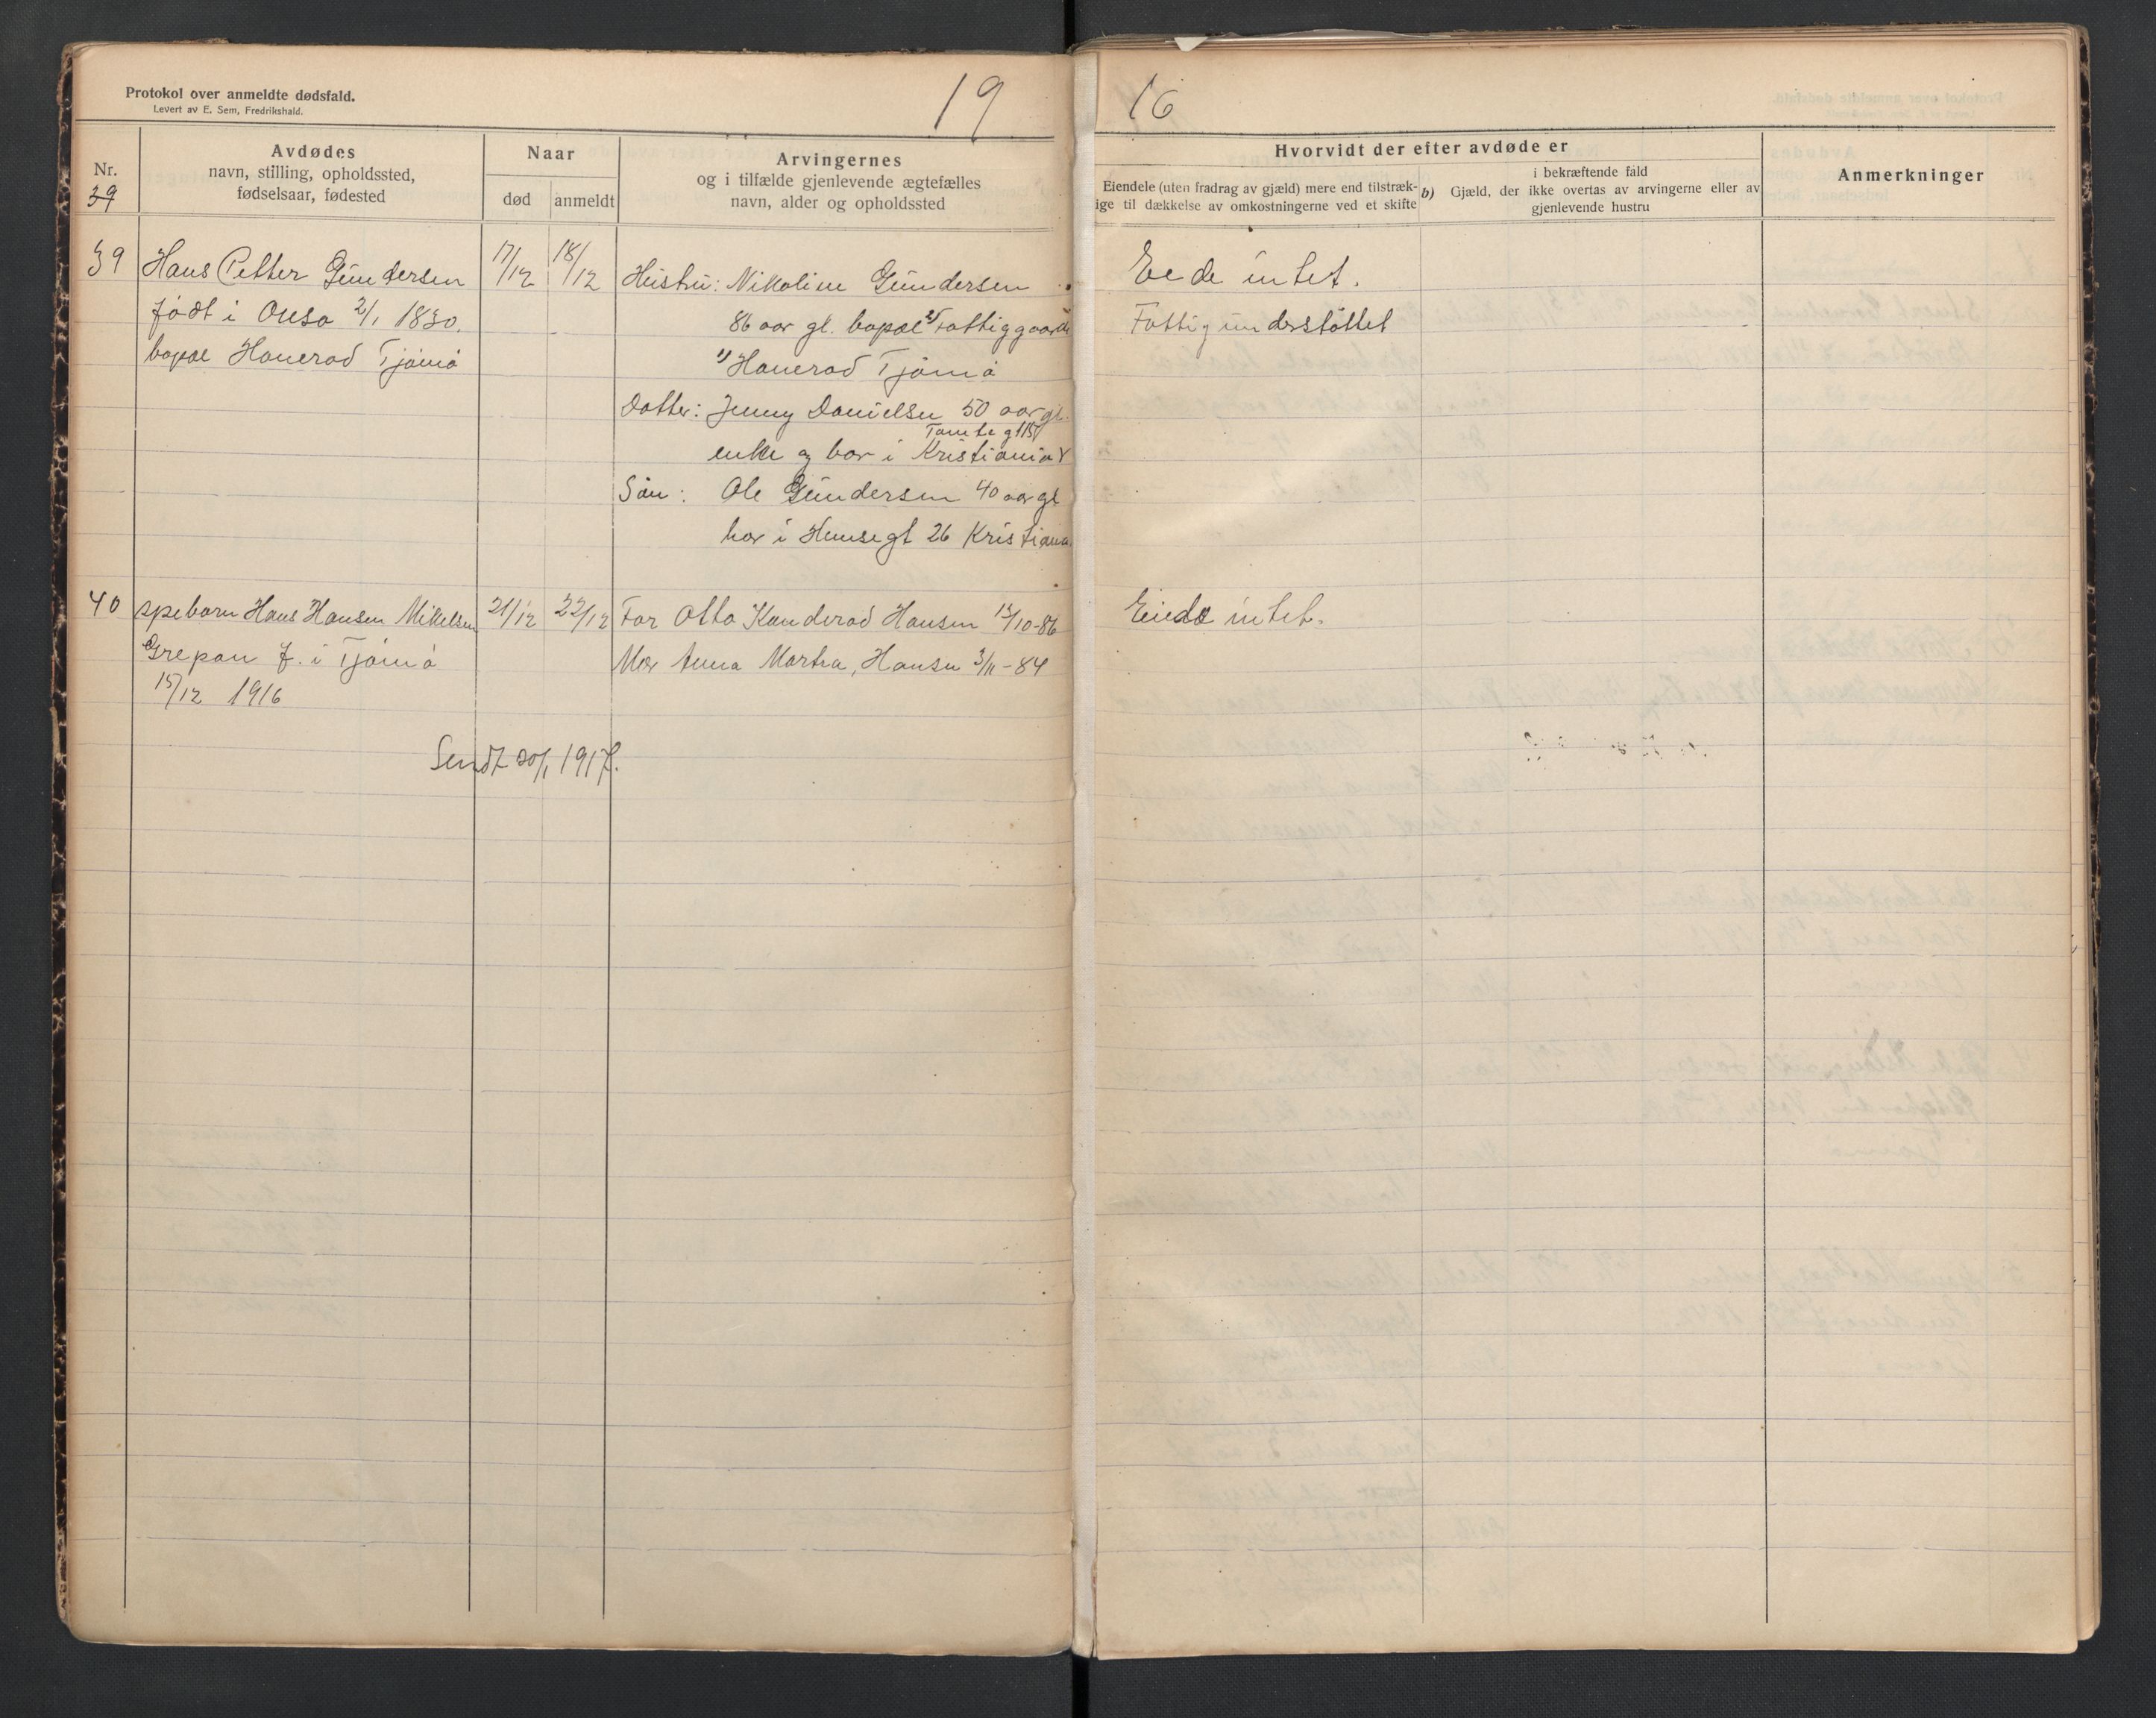 Protokol over anmeldte dødsfald.
Levert av E. Sem, Fredrikshald.
19
Nr.
39
Avdødes
navn, stilling, opholdssted,
fødselsaar, fødested
Naar
død
anmeldt
Arvingernes
og i tilfælde gjenlevende ægtefælles
navn, alder og opholdssted
39
Hans Petter Gundersen
født i Onsø 2/1 1830.
bopæl Honerød Tjømø
17/12
18/12
Hustru: Nikoline Gundersen
86 aar gl. bopæl 2) Fattiggaarden
1) Honerød Tjømø
Datter: Jenny Danielsen 50 aar gl.
Tomtegt 15
enke og bor i Kristiania
Søn: Ole Gundersen 40 aar gl
bor i Hensegt 26 Kristiania.
40
spebarn Hans Hansen Mikelsen
Grepan f. i Tjømø
15/12 1916
21/12
22/12
Far Otto Kanderød Hansen 15/10-86
Mor Anna Martha, Hansen 3/11-84
Sendt 20/1 1917.
16
Hvorvidt der efter avdøde er
Eiendele (uten fradrag av gjæld) mere end tilstræk-
ige til dækkelse av omkostningerne ved et skifte
b)
i bekræftende fald
Gjæld, der ikke overtas av arvingerne eller av
gjenlevende hustru
Anmerkninger
Eede intet.
Fattigunderstøttet
Eiede intet.